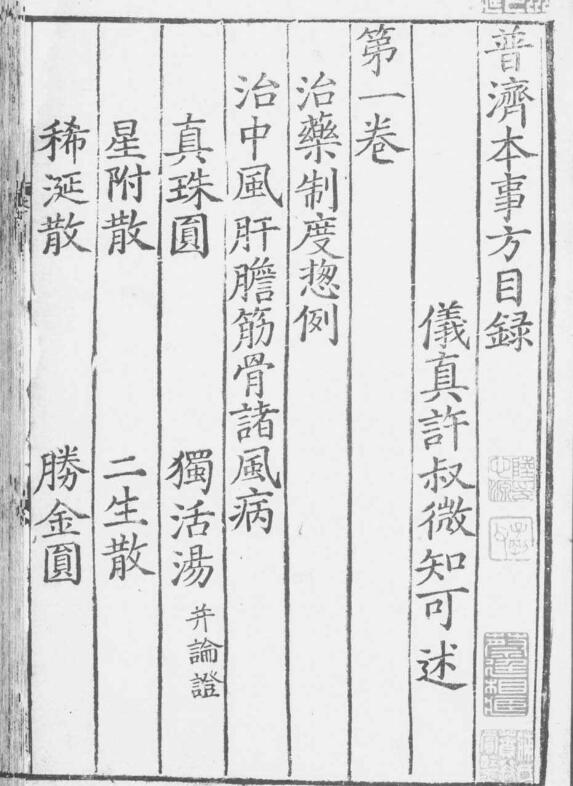 普濟本事方目録
儀真許叔微知可述
第一卷
治藥制度㧾例
治中風肝膽筋骨諸風病
真珠圓 獨活湯 并論證
星附散 二生散
稀涎散 勝金圓